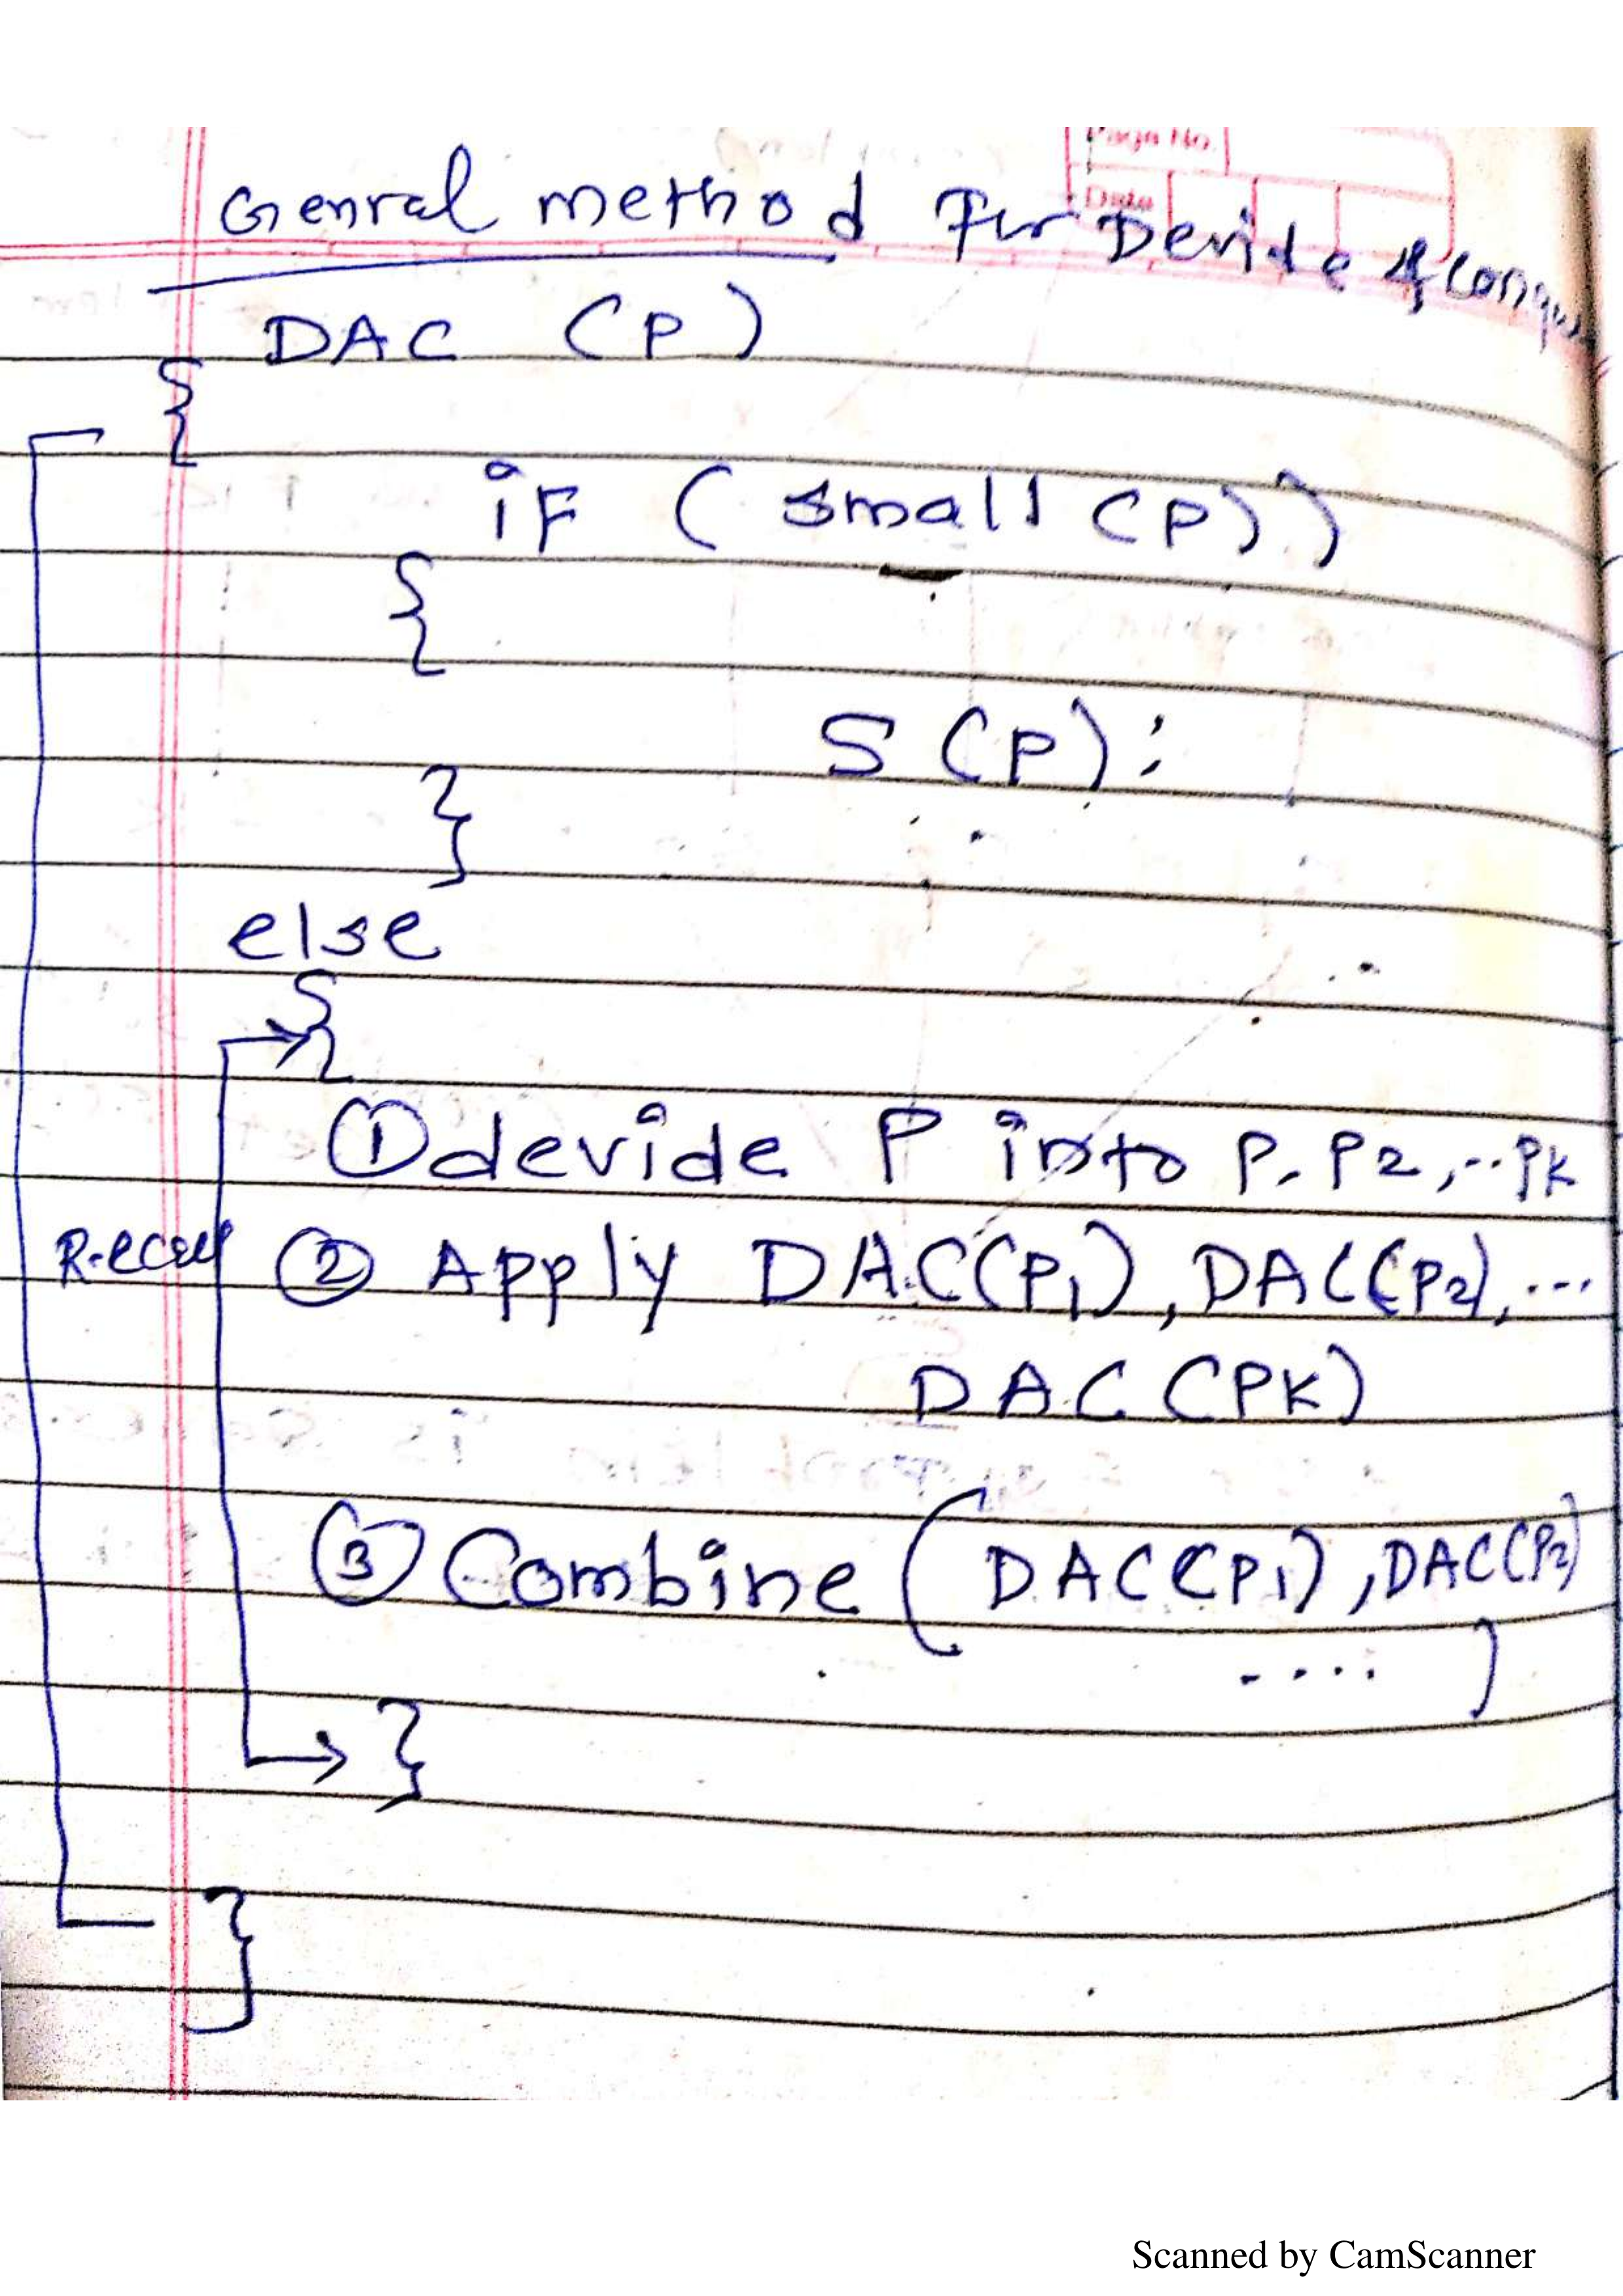 Page No.
Date
Genral method For Devide & Conque
DAC (P)
{
if (small (P))
{
S(P);
}
else
{
① devide P into P. P2, ..Pk
R-ecall ② Apply DAC(P1), DAC(P2), ...
DAC (PK)
③ Combine (DAC(P1), DAC(P2)
.... )
}
}
Scanned by CamScanner